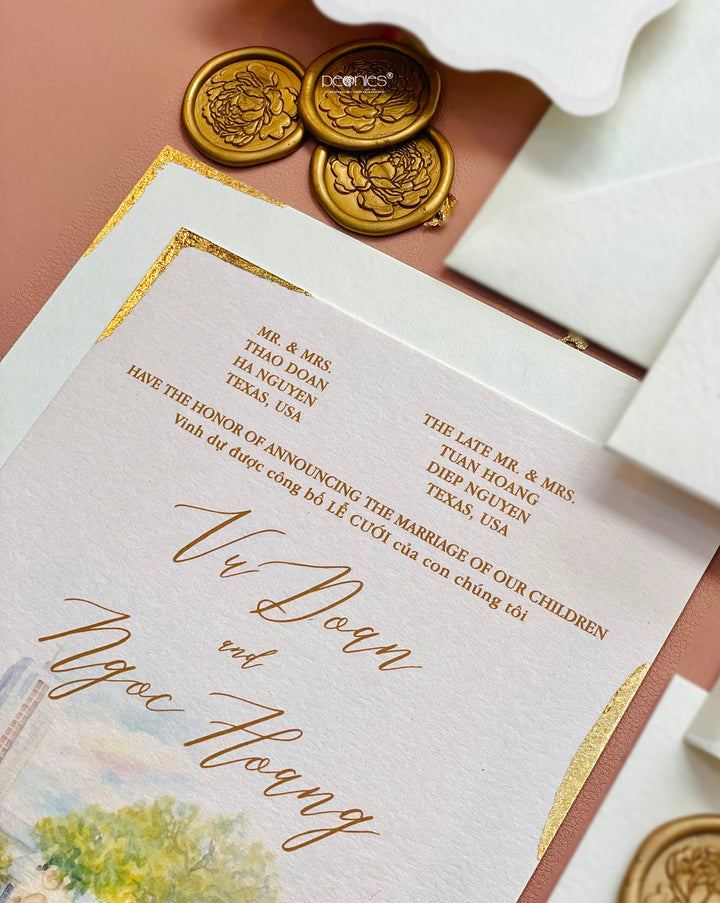 Peonies®
MR. & MRS.
THAO DOAN
HA NGUYEN
TEXAS, USA
THE LATE MR. & MRS.
TUAN HOANG
DIEP NGUYEN
TEXAS, USA
HAVE THE HONOR OF ANNOUNCING THE MARRIAGE OF OUR CHILDREN
Vinh dự được công bố LỄ CƯỚI của con chúng tôi
Vu Doan
and
Ngoc Hoang